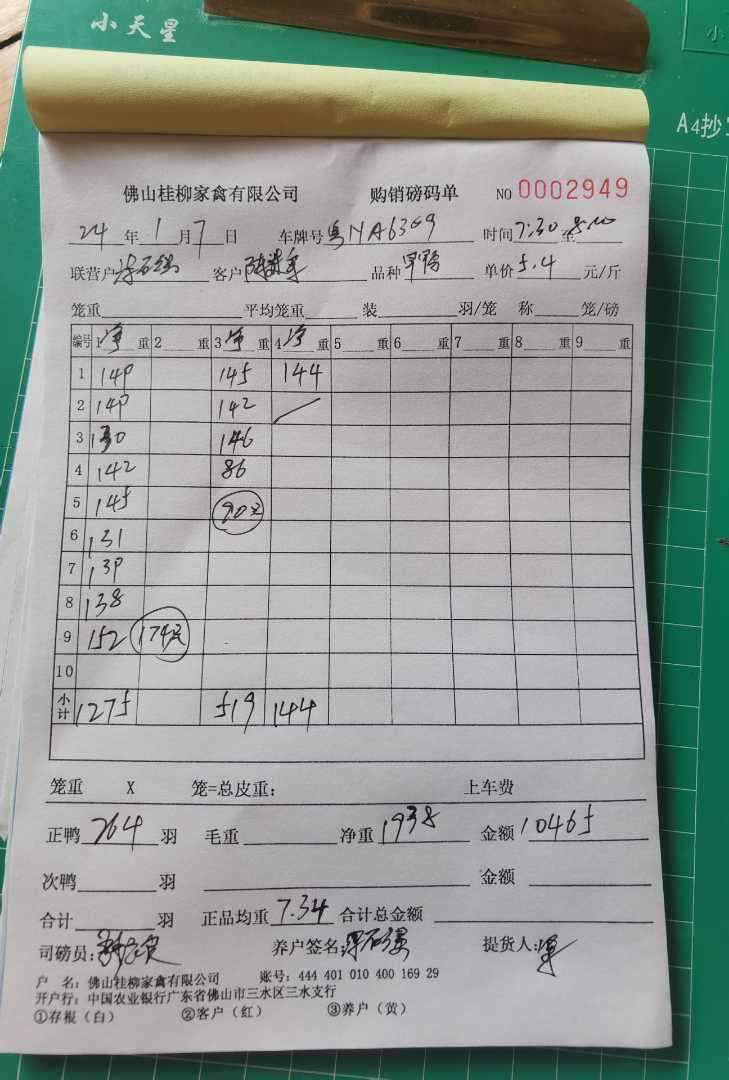 小天星
小
A4抄
佛山桂柳家禽有限公司 购销磅码单 NO 0002949
24 年 1 月 7 日 车牌号 粤NA6369 时间 7:30 至
联营户 客户 品种 早鸭 单价 5.4 元/斤
笼重 平均笼重 装 羽/笼 称 笼/磅
编号 1 净 重 2 重 3 净 重 4 净 重 5 重 6 重 7 重 8 重 9 重
1 149 145 144
2 149 142
3 130 146
4 142 86
5 145 90只
6 131
7 139
8 138
9 152 174只
10
小计 1275 519 144
笼重 X 笼=总皮重: 上车费
正鸭 264 羽 毛重 净重 1938 金额 10465
次鸭 羽 金额
合计 羽 正品均重 7.34 合计总金额
司磅员: 养户签名: 提货人:
户 名: 佛山桂柳家禽有限公司 账号: 444 401 010 400 169 29
开户行: 中国农业银行广东省佛山市三水区三水支行
①存根(白) ②客户(红) ③养户(黄)